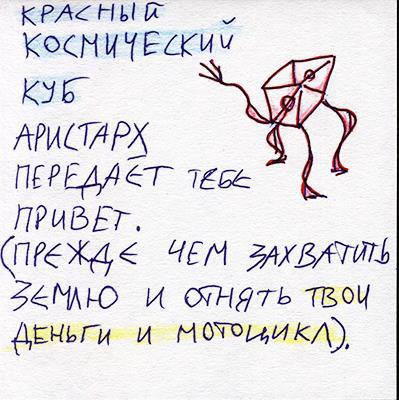 КРАСНЫЙ
КОСМИЧЕСКИЙ
КУБ
АРИСТАРХ
ПЕРЕДАЁТ ТЕБЕ
ПРИВЕТ.
(ПРЕЖДЕ ЧЕМ ЗАХВАТИТЬ
ЗЕМЛЮ И ОТНЯТЬ ТВОИ
ДЕНЬГИ И МОТОЦИКЛ).